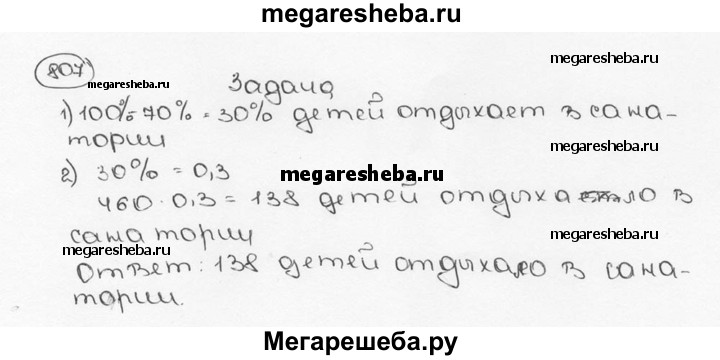 megaresheba.ru
807
megaresheba.ru
megaresheba.ru
Задача
1) 100% - 70% = 30% детей отдыхает в сана-
тории
2) 30% = 0,3
megaresheba.ru
460 · 0,3 = 138 детей отдыхало в
санатории
megaresheba.ru
megaresheba.ru
Ответ: 138 детей отдыхало в сана-
тории.
Мегарешеба.ру